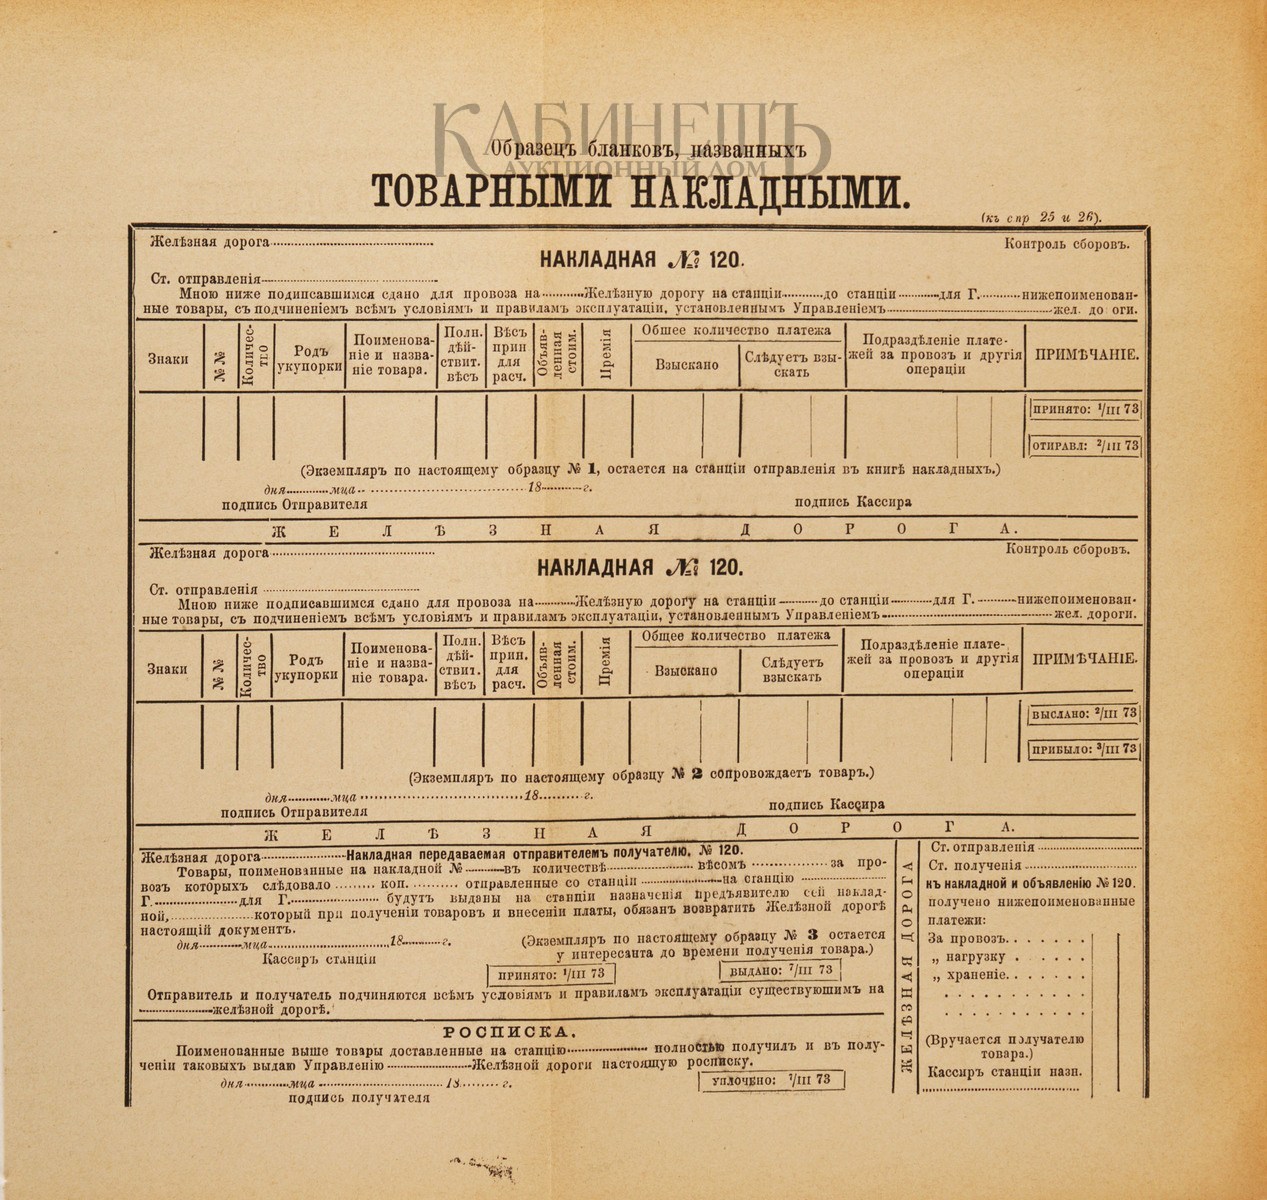 КАБИНЕТЪ
АУКЦИОННЫЙ ДОМ
Образецъ бланковъ, названныхъ
ТОВАРНЫМИ НАКЛАДНЫМИ.
(къ стр 25 и 26).
Желѣзная дорога
Контроль сборовъ.
НАКЛАДНАЯ № 120.
Ст. отправленія
Мною ниже подписавшимся сдано для провоза на Желѣзную дорогу на станціи до станціи для Г. нижепоименован-
ные товары, съ подчиненіемъ всѣмъ условіямъ и правиламъ эксплуатаціи, установленнымъ Управленіемъ жел. до оги.
Знаки
№ №
Количес-
тво
Родъ
укупорки
Поименова-
ніе и назва-
ніе товара.
Полн.
дѣй-
ствит.
вѣсъ
Вѣсъ
прин
для
расч.
Объяв-
ленная
стоим.
Премія
Общее количество платежа
Взыскано
Слѣдуетъ взы-
скать
Подраздѣленіе плате-
жей за провозъ и другія
операціи
ПРИМѢЧАНІЕ.
ПРИНЯТО: 1/III 73
ОТПРАВЛ: 2/III 73
(Экземпляръ по настоящему образцу № 1, остается на станціи отправленія въ книгѣ накладныхъ.)
дня мца 18 г.
подпись Отправителя
подпись Кассира
ЖЕЛѢЗНАЯ ДОРОГА.
Желѣзная дорога
Контроль сборовъ.
НАКЛАДНАЯ № 120.
Ст. отправленія
Мною ниже подписавшимся сдано для провоза на Желѣзную дорогу на станціи до станціи для Г. нижепоименован-
ные товары, съ подчиненіемъ всѣмъ условіямъ и правиламъ эксплуатаціи, установленнымъ Управленіемъ жел. дороги.
Знаки
№ №
Количес-
тво
Родъ
укупорки
Поименова-
ніе и назва-
ніе товара.
Полн.
дѣй-
ствит.
вѣсъ
Вѣсъ
прин.
для
расч.
Объяв-
ленная
стоим.
Премія
Общее количество платежа
Взыскано
Слѣдуетъ
взыскать
Подраздѣленіе плате-
жей за провозъ и другія
операціи
ПРИМѢЧАНІЕ.
ВЫСЛАНО: 2/III 73
ПРИБЫЛО: 3/III 73
(Экземпляръ по настоящему образцу № 2 сопровождаетъ товаръ.)
дня мца 18 г.
подпись Отправителя
подпись Кассира
ЖЕЛѢЗНАЯ ДОРОГА.
Желѣзная дорога Накладная передаваемая отправителемъ получателю, № 120.
Товары, поименованные на накладной № въ количествѣ вѣсомъ за про-
возъ которыхъ слѣдовало коп. отправленные со станціи на станцію
Г. для Г. будутъ выданы на станціи назначенія предъявителю сей наклад-
ной, который при полученіи товаровъ и внесеніи платы, обязанъ возвратить Желѣзной дорогѣ
настоящій документъ.
дня мца 18 г.
Кассиръ станціи
(Экземпляръ по настоящему образцу № 3 остается
у интересанта до времени полученія товара.)
ПРИНЯТО: 1/III 73
ВЫДАНО: 7/III 73
Отправитель и получатель подчиняются всѣмъ условіямъ и правиламъ эксплуатаціи существующимъ на
желѣзной дорогѣ.
РОСПИСКА.
Поименованные выше товары доставленные на станцію полностью получилъ и въ полу-
ченіи таковыхъ выдаю Управленію Желѣзной дороги настоящую росписку.
дня мца 18 г.
УПЛОЧЕНО: 7/III 73
подпись получателя
ЖЕЛѢЗНАЯ ДОРОГА
Ст. отправленія
Ст. полученія
къ накладной и объявленію № 120.
получено нижепоименованные
платежи:
За провозъ.
„ нагрузку
„ храненіе.
(Вручается получателю
товара.)
Кассиръ станціи назн.